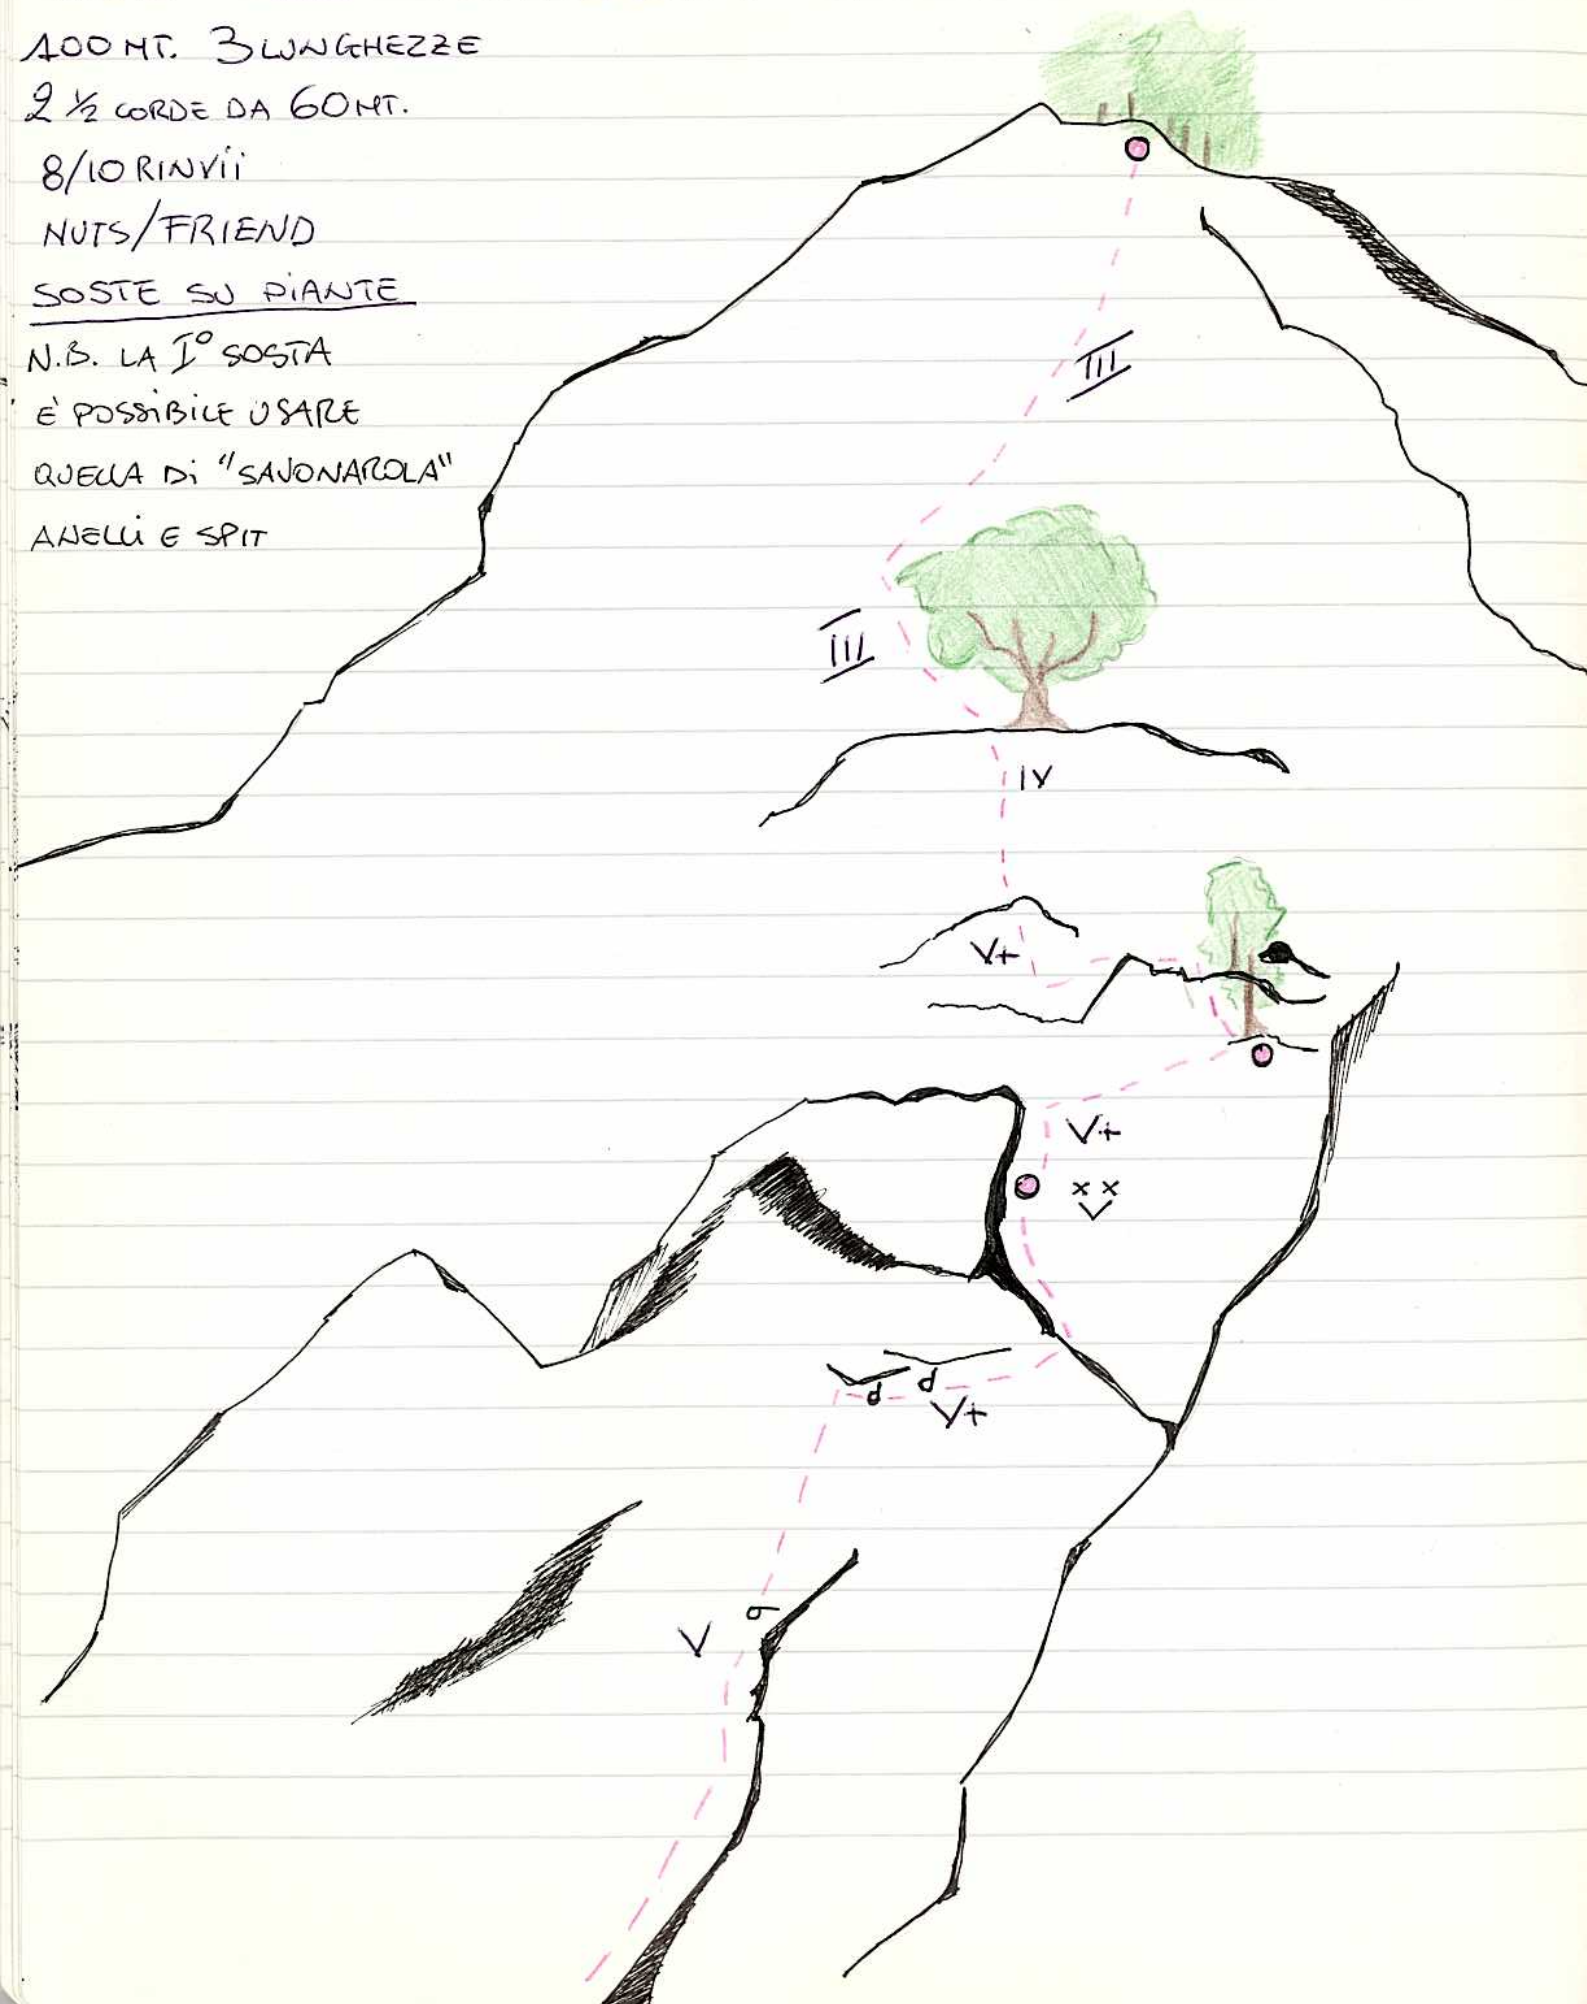 100 MT. 3 LUNGHEZZE
2 ½ CORDE DA 60 MT.
8/10 RINVII
NUTS/FRIEND
SOSTE SU PIANTE
N.B. LA I° SOSTA
E' POSSIBILE USARE
QUELLA DI "SAVONAROLA"
ANELLI E SPIT
III
III
IV
V+
V+
x x
V+
V